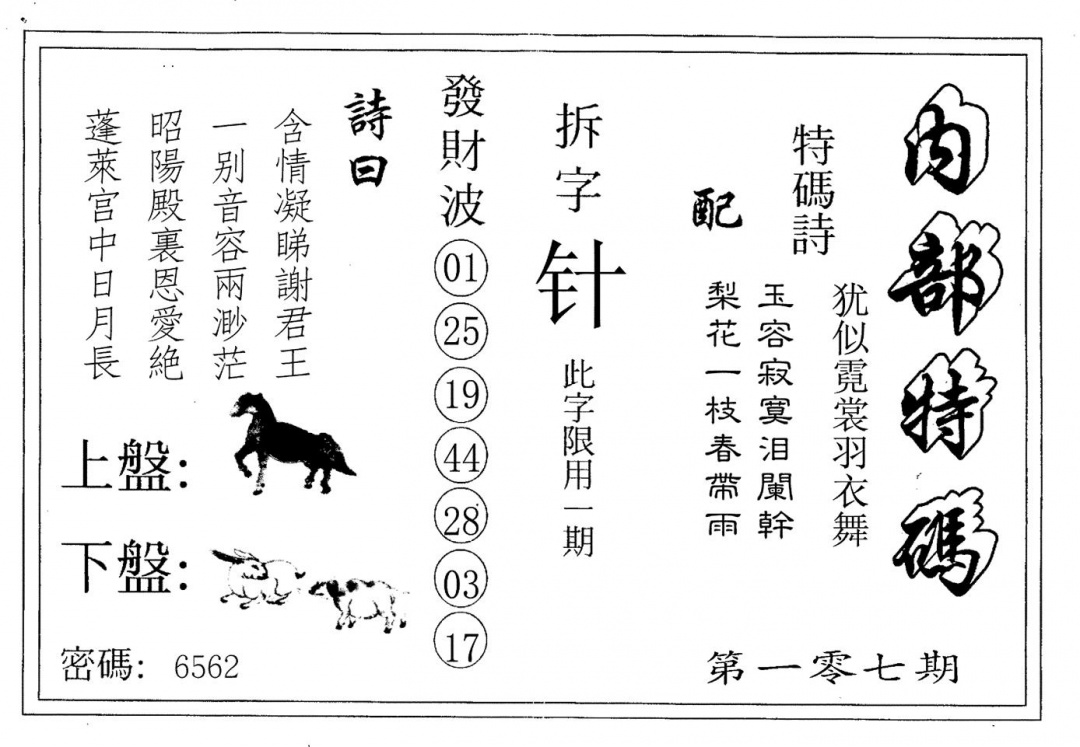 內部特碼
第一零七期
特碼詩
猶似霓裳羽衣舞
玉容寂寞泪闌幹
配
梨花一枝春帶雨
拆字
针
此字限用一期
發財波
01
25
19
44
28
03
17
詩曰
含情凝睇謝君王
一别音容兩渺茫
昭陽殿裏恩愛絶
蓬萊宮中日月長
上盤：
下盤：
密碼：6562